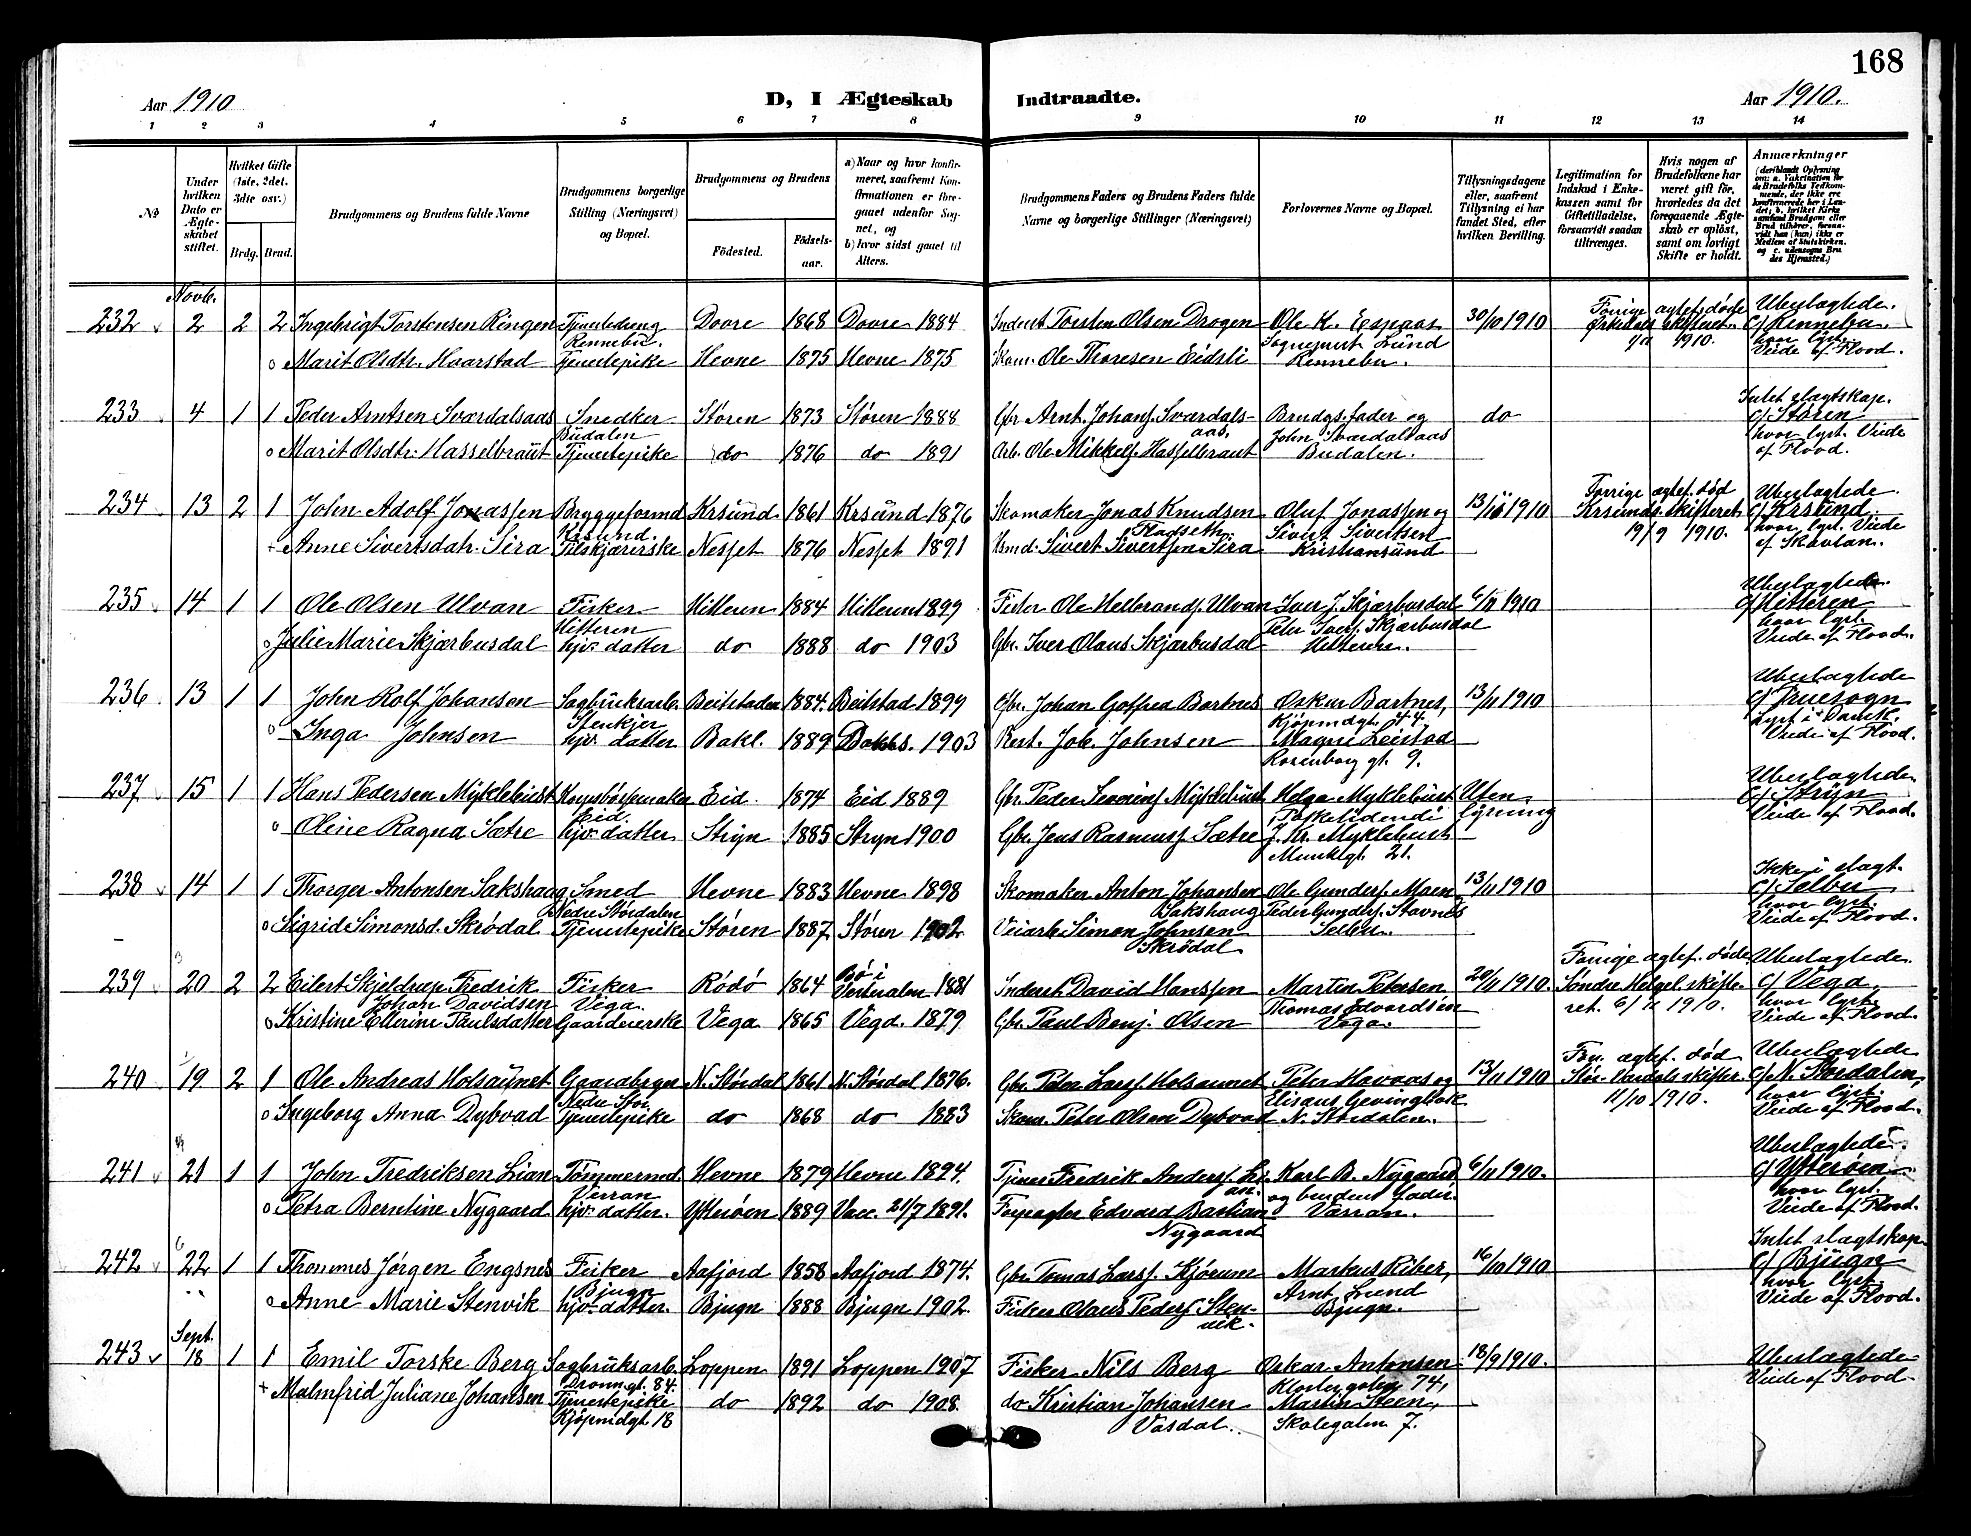 168
Aar 1910
D, I Ægteskab
Indtraadte.
Aar 1910.
1 2 3 4 5 6 7 8 9 10 11 12 13 14
No
Under hvilken Dato er Ægteskabet stiftet.
Hvilket Gifte (1ste, 2det, 3die osv.)
Brdg. Brud.
Brudgommens og Brudens fulde Navne
Brudgommens borgerlige Stilling (Næringsvei) og Bopæl.
Brudgommens og Brudens
Fødested.
Fødselsaar.
a) Naar og hvor konfirmeret, saafremt Konfirmationen er foregaaet udenfor Sognet, og
b) hvor sidst gaaet til Alters.
Brudgommens Faders og Brudens Faders fulde Navne og borgerlige Stillinger (Næringsvei)
Forlovernes Navne og Bopæl.
Tillysningsdagene eller, saafremt Tillysning ei har fundet Sted, efter hvilken Bevilling.
Legitimation for Indskud i Enkekassen samt for Giftetilladelse, forsaavidt saadan tiltrænges.
Hvis nogen af Brudefolkene har været gift før, hvorledes da det foregaaende Ægteskab er opløst, samt om lovligt Skifte er holdt.
Anmærkninger
Novb.
232 2 2 2 Ingebrigt Torstensen Ringen Tjenestedreng Dovre 1868 Dovre 1884 Inderst Torsten Olsen Drogen Ole K. Espaas 30/10 1910 Forrige ægtef. døde Ubeslægtede.
Rennebu. Sogneprest Lund Orkedals skifteret 1910. Rennebu. hvor lyst.
Marit Olsdtr. Haarstad Tjenestepike Hevne 1875 Hevne 1875 Skom. Ole Thoresen Eidsli Rennebu. Viede af Flood.
233 4 1 1 Peder Arntsen Sværdalsaas Snedker Støren 1873 Støren 1888 Gbr. Arnt Johans. Sværdalsaas, Brudgs. fader og do Intet slægtskap.
Budalen John Sværdalsaas Støren
Marit Olsdtr. Hasselbraut Tjenestepike do 1876 do 1891 Arb. Ole Mikkels. Hasselbraut Budalen. hvor lyst. Viede af Flood.
234 13 2 1 John Adolf Jonassen Bryggeformd Krsund. 1861 Krsund 1876 Skomaker Jonas Knudsen Oluf Jonassen og 13/11 1910 Forrige ægtef. død Ubeslægtede.
Krsund. Sivert Sivertsen Krsunds skifteret 19/9 1910. Krsund.
Anne Sivertsdatr. Sira Tilskjærerske Nesset 1876 Nesset 1891 Hsmd. Sivert Sivertsen Sira Kristiansund hvor lyst. Viede af Skavlan.
235 14 1 1 Ole Olsen Ulvan Fisker Hitteren 1884 Hitteren 1899 Fisker Ole Helbrands. Ulvan Iver J. Skjærbusdal 6/11 1910 Ubeslægtede.
Hitteren Peter Ivers. Skjærbusdal Hitteren
Julie Marie Skjærbusdal hjv. datter do 1888 do 1903 Gbr. Iver Olaus Skjærbusdal Hitteren. hvor lyst. Viede af Flood.
236 13 1 1 John Rolf Johansen Sagbruksarb. Beitstaden 1884. Beitstad 1899 Gbr. Johan Gotfred Bartnes Oskar Bartnes, 13/11 1910 Ubeslægtede
Stenkjer Kjøpmdgt. 44. Fruesogn
Inga Johnsen hjv. datter Bakl. 1889 Bakl. 1903 Rest. Joh. Johnsen Magne Leistad Lyst i Domk.
Rosenborg gt. 9. Viede af Flood.
237 15 1 1 Hans Pedersen Myklebust Eid. 1874 Eid 1889 Gbr. Peder Myklebust Helga Myklebust Uten lysning Ubeslægtede.
Eid. Stryn
Oline Ragna Sætre hjv. datter Stryn 1885 Stryn 1900 Gbr. Jens Rasmuss. Sætre J. Kr. Myklebust Viede af Flood.
Munkgt. 21.
238 14 1 1 Thorger Antonsen Sakshaug Smed Hevne 1883 Hevne 1898 Skomaker Anton Johansen Sakshaug Ole Gunders. Moen 13/11 1910 Ikke i slægt.
Nedre Stördalen Peder Gunders. Stavnes Selbu
Sigrid Simonsd. Skrødal Tjenestepike Støren 1887 Støren 1902 Veiarb. Simon Johnsen Skrödal Selbu. hvor lyst. Viede af Flood.
239 20 2 2 Eilert Skjeldrup Fredrik Johan Davidsen Fisker Rödö 1864 Bö i Vesteralen 1881 Inderst David Hanssen Martin Petersen 20/11 1910. Forrige ægtef. døde Ubeslægtede.
Vega. Thomas Edvardsen Søndre Helgel. skifteret. Vega,
Kristine Ellerine Paulsdatter Gaardeierske Vega 1865 Vega. 1879 Gbr. Paul Benj. Olsen Vega. 1910. hvor lyst. Viede af Flood.
240 19 2 1 Ole Andreas Holsaunet Gaardbruger N. Stördal 1861 N. Stördal 1876. Gbr. Peter Lars. Holsaunet Peter Havaas og 13/11 1910 Forr. ægtef. død Ubeslægtede
Nedre Stør. Elisæus Gevingbak Stør- Værdals skifter. 11/10 1910. N. Stördalen,
Ingeborg Anna Dybvad Tjenestepike do 1868 do 1883 Skom. Peter Olsen Dybvad N. Stördalen. hvor lyst. Viede af Flood.
241 21 1 1 John Fredriksen Lian Tömmermd. Hevne 1879 Hevne 1894. Tjener Fredrik Anders. Lian. Karl B. Nygaard 6/11 1910. Ubeslægtede.
Verran og brudens fader. Ytterøen
Petra Berntine Nygaard hjv. datter. Ytterøen 1889 Vacc. 21/7 1891. Edvard Bastian Nygaard Værran. hvor lyst. Viede af Flood.
242 22 1 1 Thommes Jørgen Engsnes Fisker Aafjord 1858 Aafjord 1874. Gbr. Tomas Lars. Kjørum Markus Riber, 16/10 1910 Intet slægtskap
Bjugn Arnt Lund Bjugn
Anne Marie Stenvik hjv. datter. Bjugn 1888 Bjugn 1902. Fisker Olaus Peders. Stenvik. Bjugn. hvor lyst. Viede af Flood.
Sept.
243 18 1 1 Emil Torske Berg Sagbruksarb. Loppen 1891 Loppen 1907 Fisker Nils Berg Oskar Antonsen 18/9 1910. Ubeslægtede
Dronn.gt. 84. Klostergaten 74, Viede af Flood.
Malmfrid Juliane Johansen Tjenestepike do 1892 do 1908 do Kristian Johansen Vasdal. Martin Steen,
Kjøpmdgt. 18 Skolegaten 7.